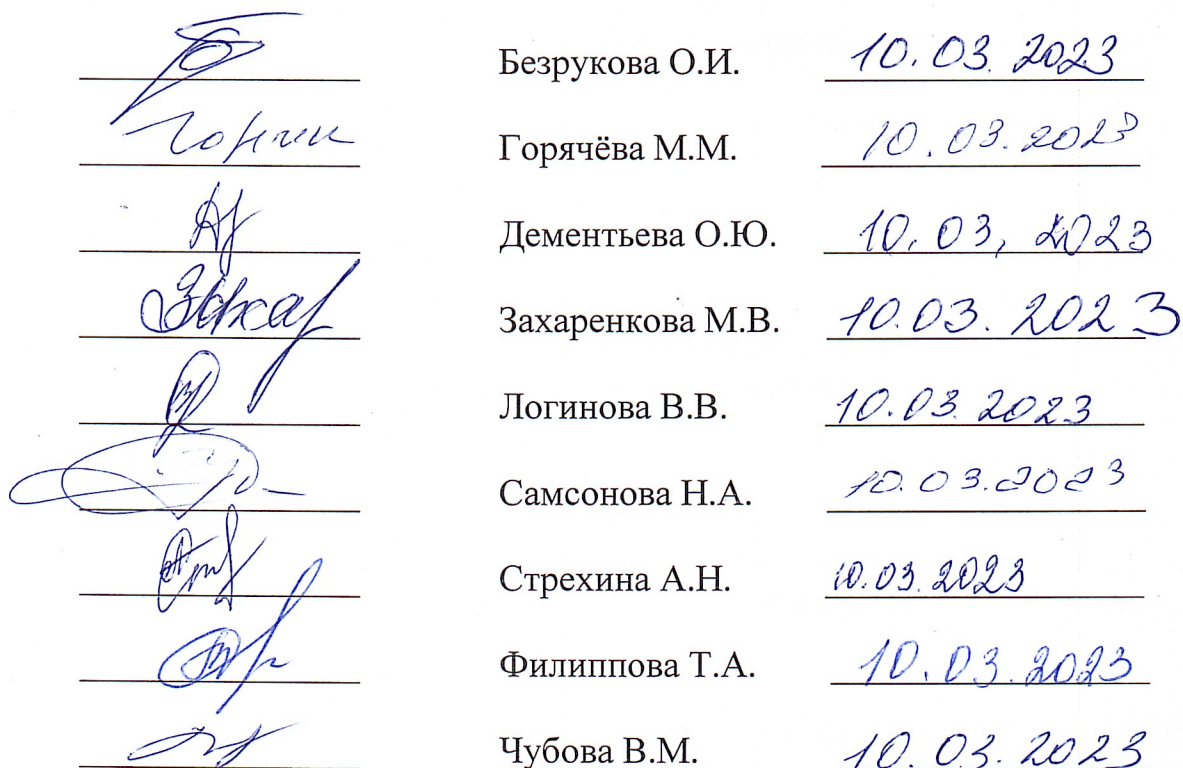 Безрукова О.И. 10.03.2023
Горячёва М.М. 10.03.2023
Дементьева О.Ю. 10.03,2023
Захаренкова М.В. 10.03.2023
Логинова В.В. 10.03.2023
Самсонова Н.А. 10.03.2023
Стрехина А.Н. 10.03.2023
Филиппова Т.А. 10.03.2023
Чубова В.М. 10.03.2023